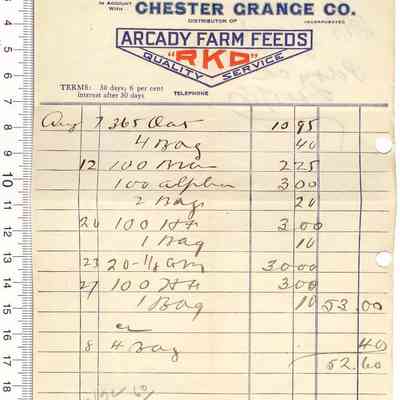 In Account With
CHESTER GRANGE CO.
DISTRIBUTOR OF INCORPORATED
ARCADY FARM FEEDS
"RKD"
QUALITY SERVICE
TERMS: 30 days; 6 per cent
interest after 30 days
TELEPHONE
Aug 7 365 Oats 10 95
4 Bag 40
12 100 Bran 2 25
100 alpha 3 00
2 Bags 20
20 100 3 00
1 Bag 10
23 20- 30 00
27 100 3 00
1 Bag 10 53.00
cr
8 4 Bag 40
52.60
4
5
6
7
8
9
10
11
12
13
14
15
16
17
18